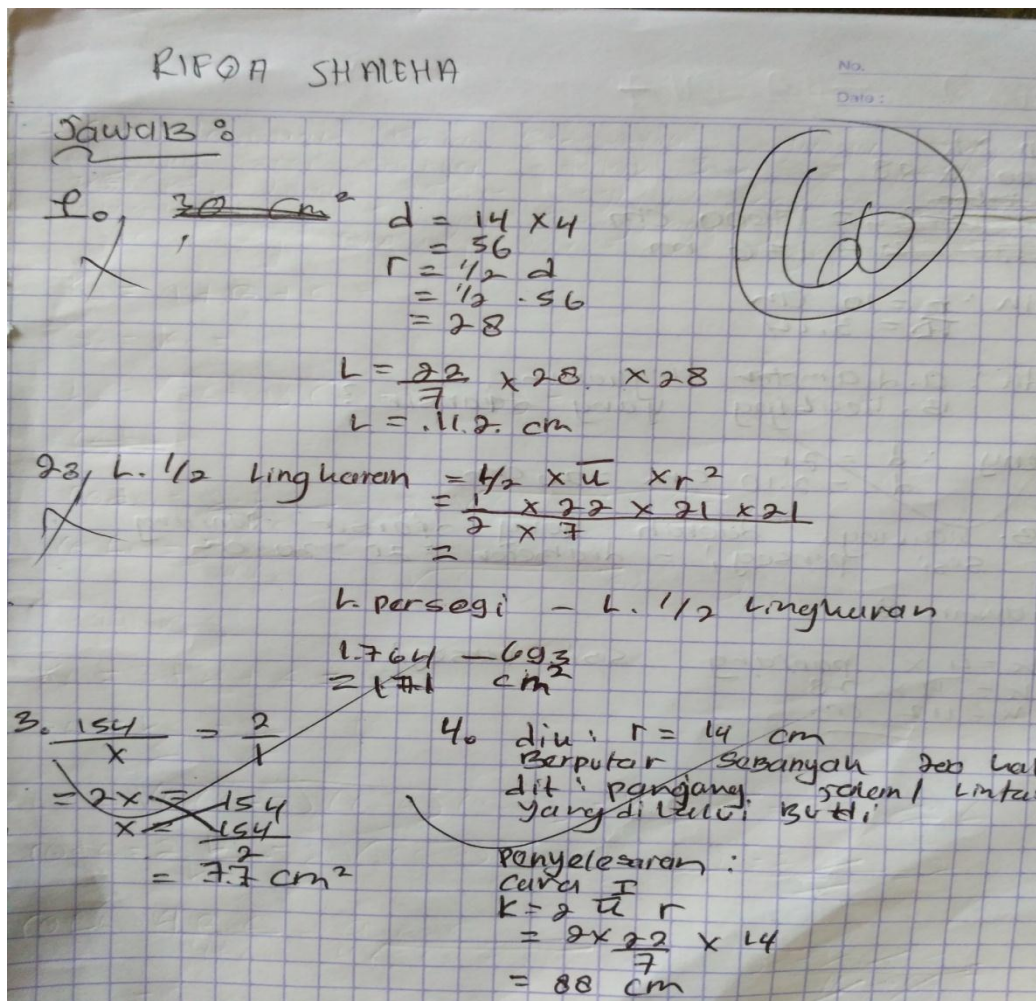 RIFQA SHALEHA
No.
Date:
Jawab :
30 cm²
d = 14 x 4
= 56
r = 1/2 d
= 1/2 . 56
= 28
L = 22/7 x 28 x 28
L = .112. cm
60
23, L. 1/2 Lingkaran = 1/2 x π x r²
= 1 x 22 x 21 x 21
2 x 7
=
L. persegi - L. 1/2 Lingkaran
1.764 - 693
= 1.71 cm²
3. 154/x = 2/1
= 2x = 154
x = 154/2
= 77 cm²
4. dik : r = 14 cm
Berputar sebanyak 200 kal
dit : pangang
yang dilalui Budi
Penyelesaian :
Cara I
K = 2 π r
= 2 x 22/7 x 14
= 88 cm